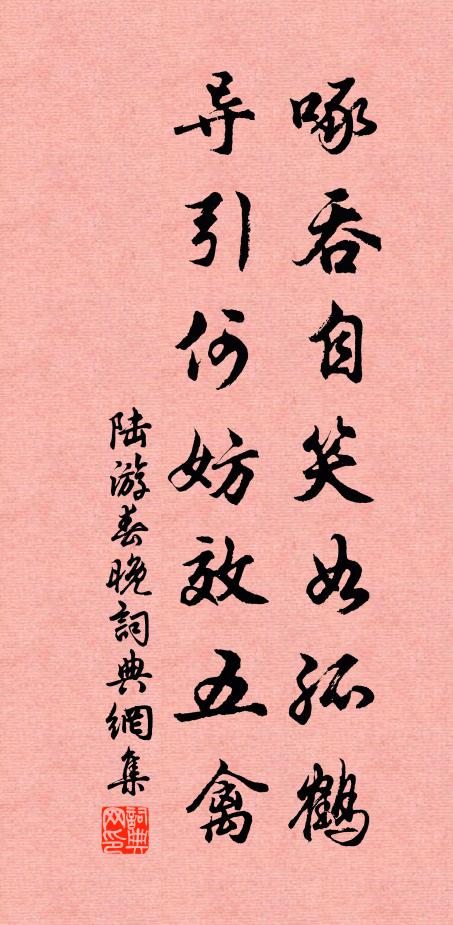 啄吞自笑如孤鹤
导引何妨效五禽
陆游春晚詞典網集
詞典
网印